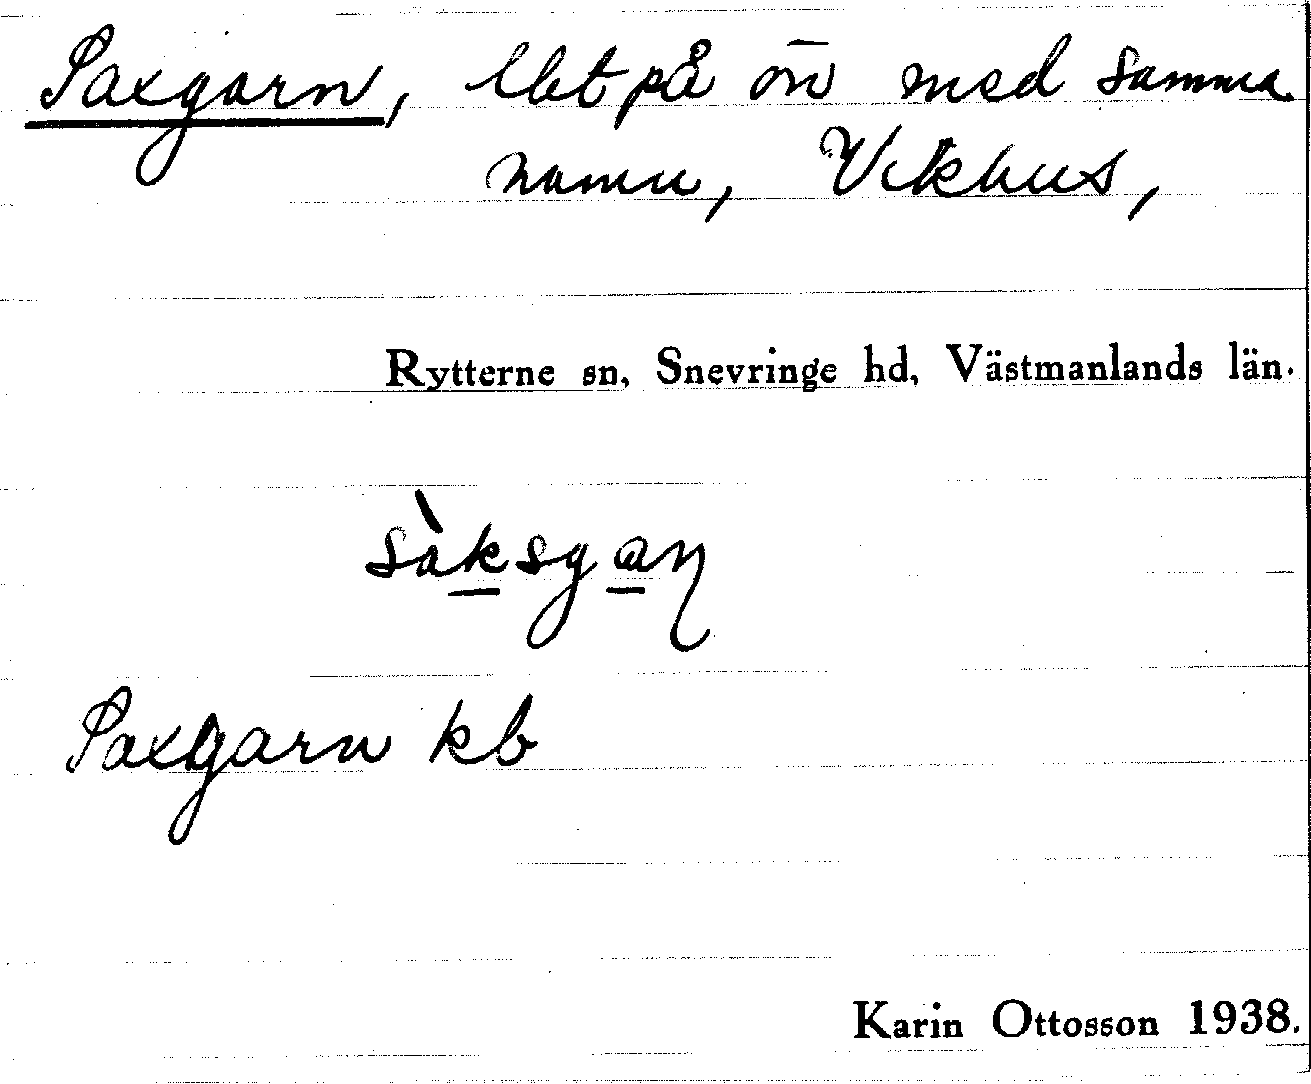 Saxgarn, lht på ön med samma
namn, Vikhus,
Rytterne sn, Snevringe hd, Västmanlands län.
sàksgaɳ
Saxgarn kb
Karin Ottosson 1938.